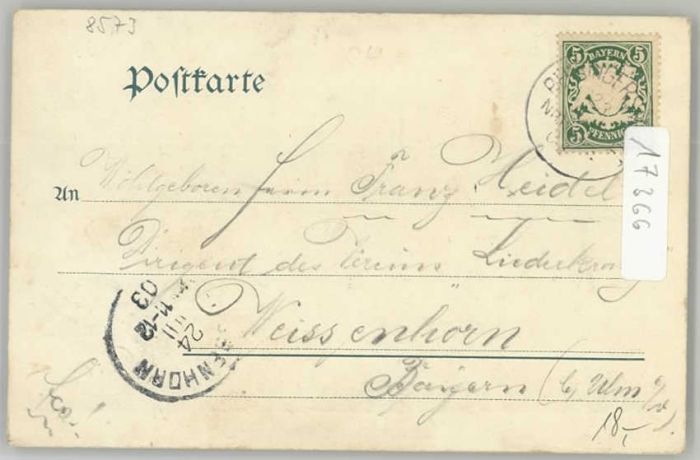 8573
Postkarte
5 BAYERN 5
5 PFENNIG
17266
An Wohlgeboren Herrn Franz Heidel
Dirigent des Vereins Liederkranz
Weissenhorn
Bayern (b/ Ulm a/d)
SSENHORN
24
III
11-12
03
18,-